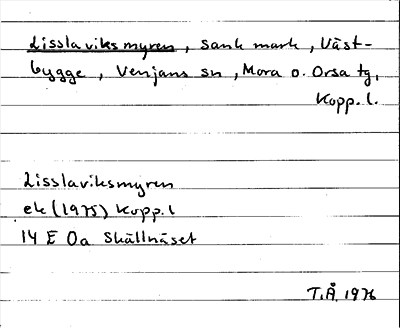 Lisslaviksmyren, sank mark, Väst-
bygge, Venjans sn, Mora o. Orsa tg,
Kopp. l.
Lisslaviksmyren
ek (1975) Kopp. l
14 E 0a Skällnäset
T.Å. 1976